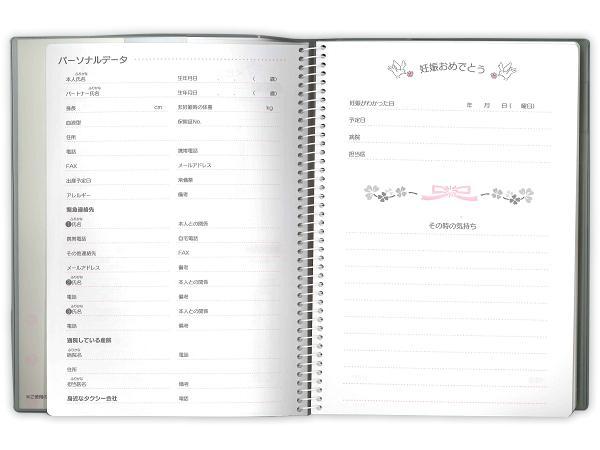 パーソナルデータ
ふりがな
本人氏名 生年月日 . . ( 歳)
ふりがな
パートナー氏名 生年月日 . . ( 歳)
身長 cm 非妊娠時の体重 kg
血液型 保険証No.
住所
電話 携帯電話
FAX メールアドレス
出産予定日 常備薬
アレルギー 備考
緊急連絡先
ふりがな
❶氏名 本人との関係
携帯電話 自宅電話
その他連絡先 FAX
メールアドレス 備考
ふりがな
❷氏名 本人との関係
電話 備考
ふりがな
❸氏名 本人との関係
電話 備考
通院している産院
ふりがな
病院名 電話
住所
ふりがな
担当医名 備考
身近なタクシー会社 電話
妊娠おめでとう
妊娠がわかった日 年 月 日 ( 曜日)
予定日
病院
担当医
その時の気持ち